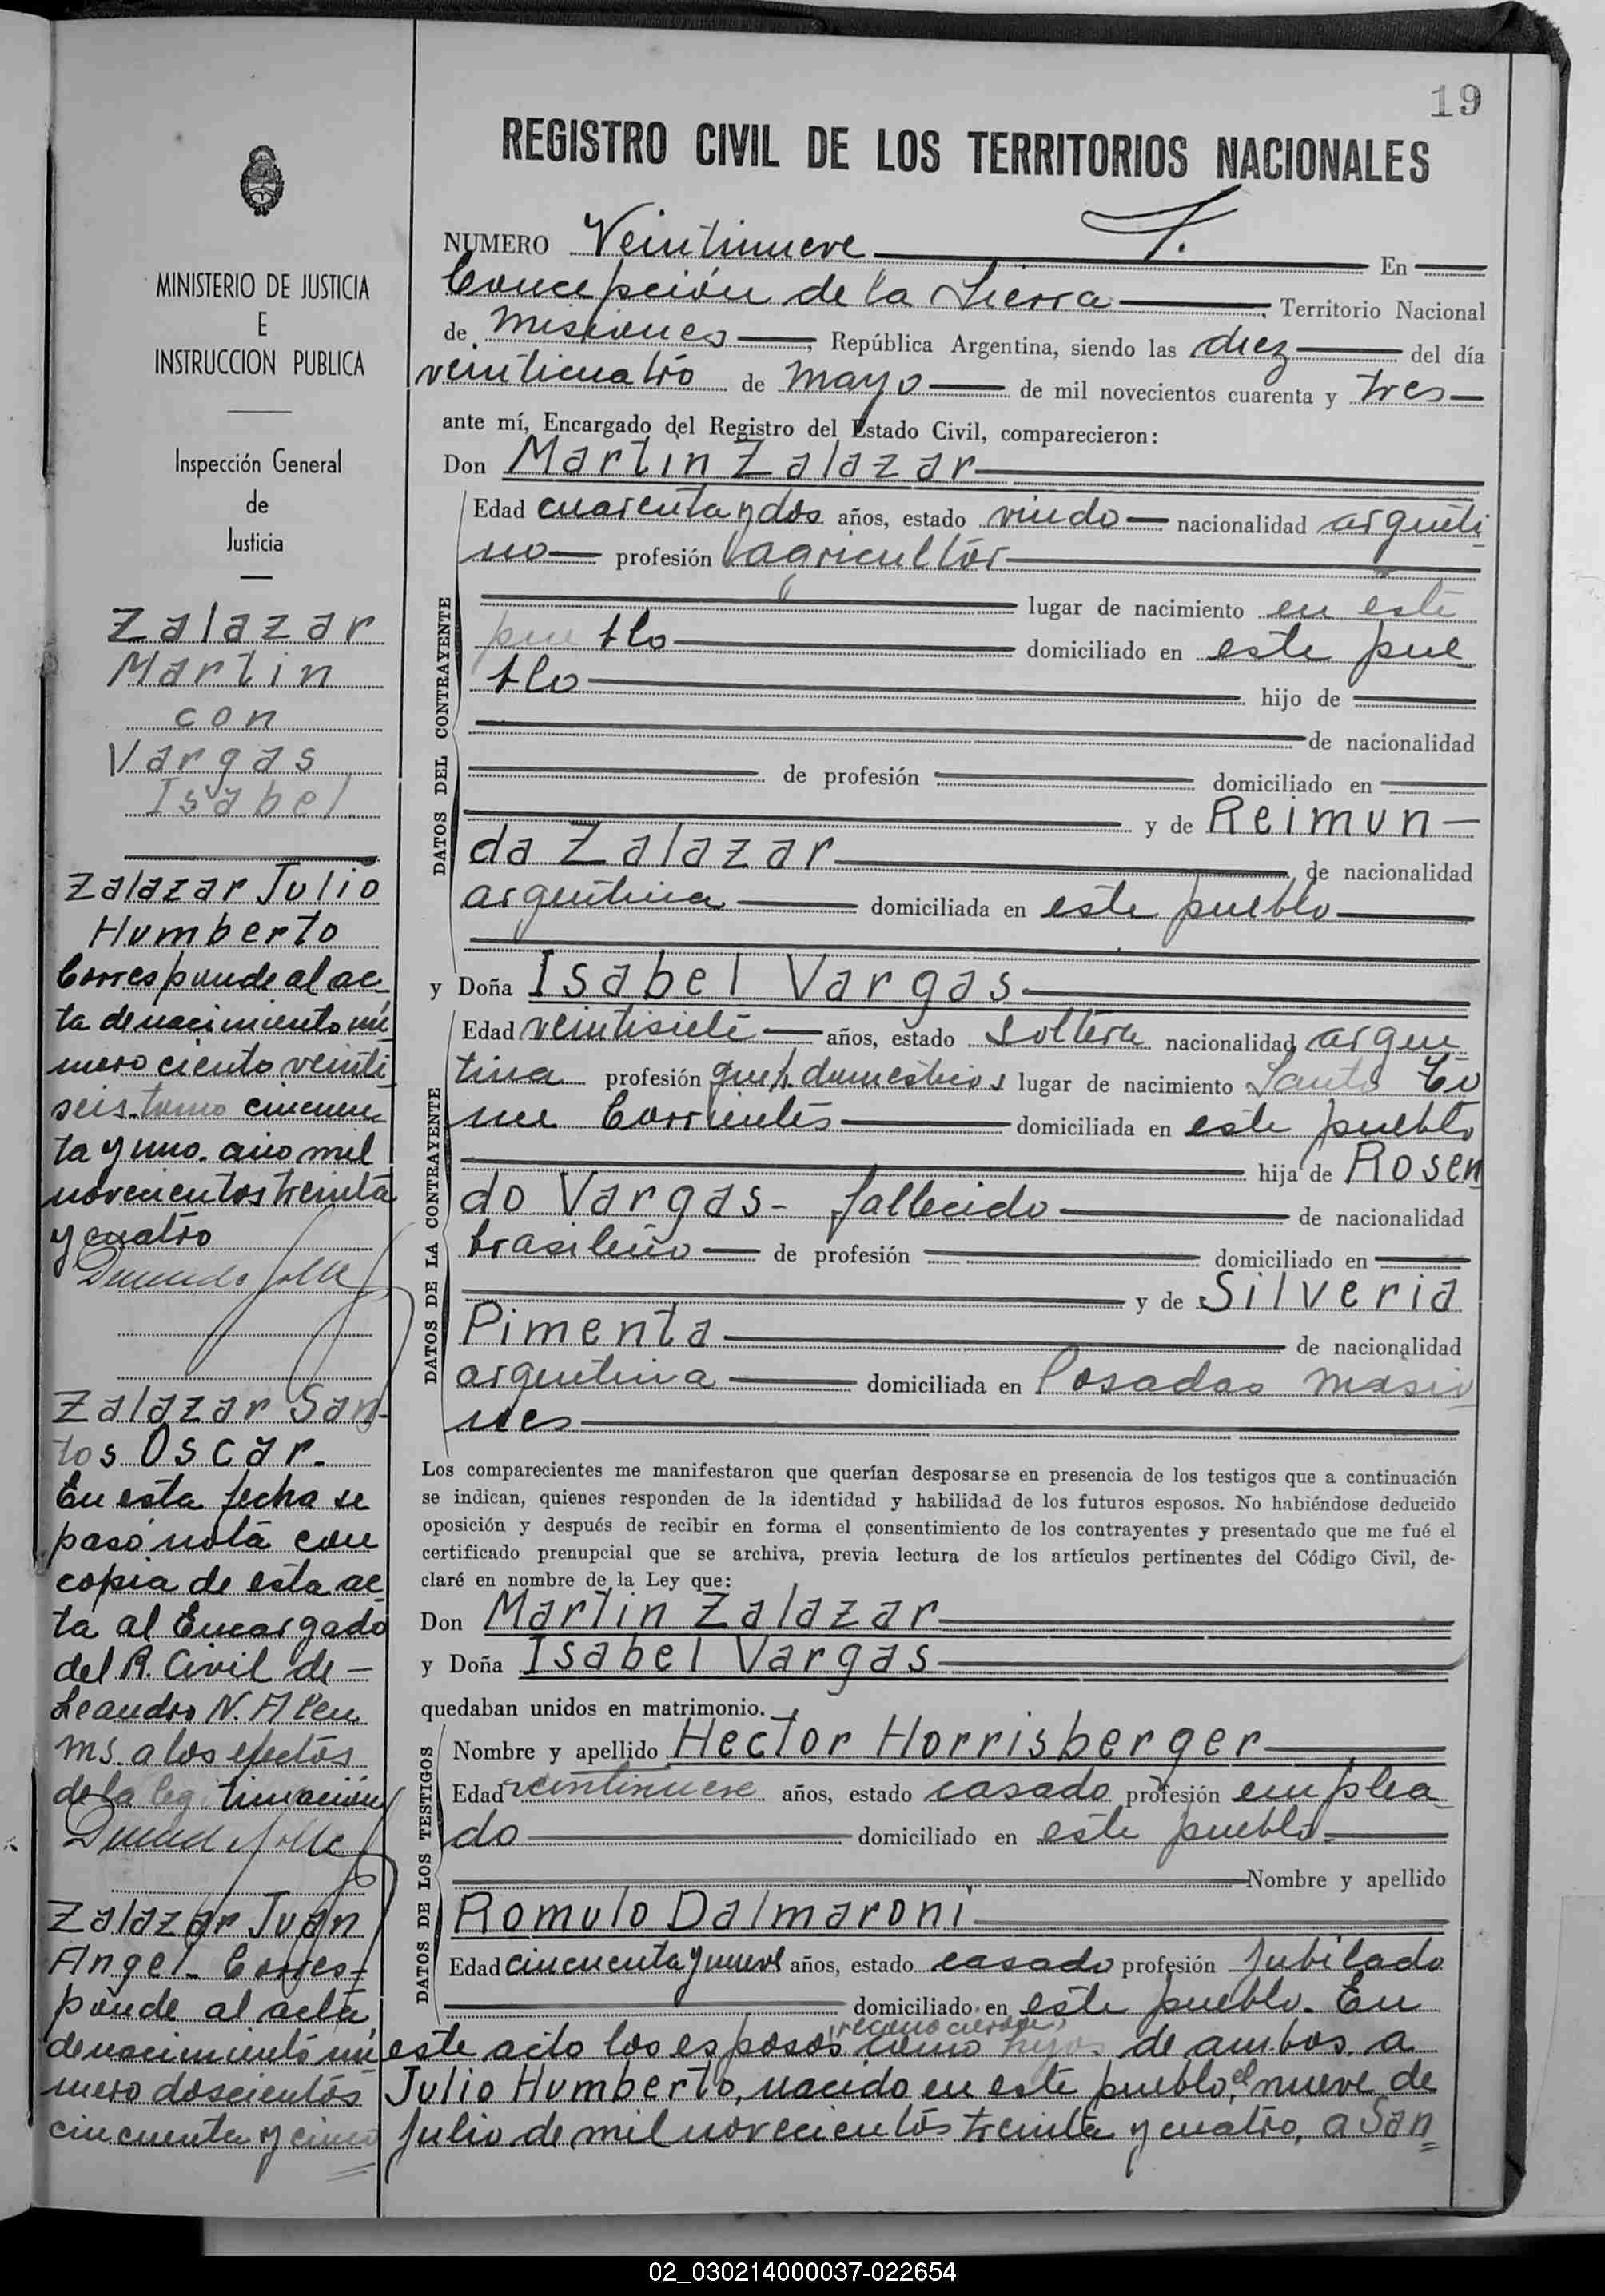 19
REGISTRO CIVIL DE LOS TERRITORIOS NACIONALES
NUMERO Veintinueve En
Concepción de la Sierra Territorio Nacional
de Misiones, República Argentina, siendo las diez del día
veinticuatro de Mayo de mil novecientos cuarenta y tres
ante mí, Encargado del Registro del Estado Civil, comparecieron:
Don Martin Zalazar
DATOS DEL CONTRAYENTE
Edad cuarenta y dos años, estado viudo nacionalidad argenti
no profesión agricultor
lugar de nacimiento en este
pueblo domiciliado en este pue
blo hijo de
de nacionalidad
de profesión domiciliado en
y de Reimun-
da Zalazar de nacionalidad
argentina domiciliada en este pueblo
y Doña Isabel Vargas
DATOS DE LA CONTRAYENTE
Edad veintisiete años, estado soltera nacionalidad argen
tina profesión domesticos lugar de nacimiento Santo To
me Corrientes domiciliada en este pueblo
hija de Rosen
do Vargas- fallecido de nacionalidad
brasileño de profesión domiciliado en
y de Silveria
Pimenta de nacionalidad
argentina domiciliada en Posadas Misio
nes
Los comparecientes me manifestaron que querían desposarse en presencia de los testigos que a continuación
se indican, quienes responden de la identidad y habilidad de los futuros esposos. No habiéndose deducido
oposición y después de recibir en forma el consentimiento de los contrayentes y presentado que me fué el
certificado prenupcial que se archiva, previa lectura de los artículos pertinentes del Código Civil, de-
claré en nombre de la Ley que:
Don Martin Zalazar
y Doña Isabel Vargas
quedaban unidos en matrimonio.
DATOS DE LOS TESTIGOS
Nombre y apellido Hector Horrisberger
Edad veintinueve años, estado casado profesión emplea
do domiciliado en este pueblo
Nombre y apellido
Romulo Dalmaroni
Edad cincuenta y nueve años, estado casado profesión Jubilado
domiciliado en este pueblo. En
reconocieron
este acto los esposos como hijos de ambos a
Julio Humberto, nacido en este pueblo, el nueve de
Julio de mil novecientos treinta y cuatro, a San
MINISTERIO DE JUSTICIA
E
INSTRUCCION PUBLICA
Inspección General
de
Justicia
Zalazar
Martin
con
Vargas
Isabel
Zalazar Julio
Humberto
Corresponde al ac
ta de nacimiento nú
mero ciento veinti
seis tomo cincuen
ta y uno. año mil
novecientos treinta
y cuatro
Zalazar San-
tos Oscar.
En esta fecha se
pasó nota con
copia de esta ac
ta al Encargado
del R. Civil de
Leandro N. Alem
Ms. a los efectos
de la legitimación
Zalazar Juan
Angel- Corres-
ponde al acta
de nacimiento nú
mero doscientos
cincuenta y cinco
02_030214000037-022654